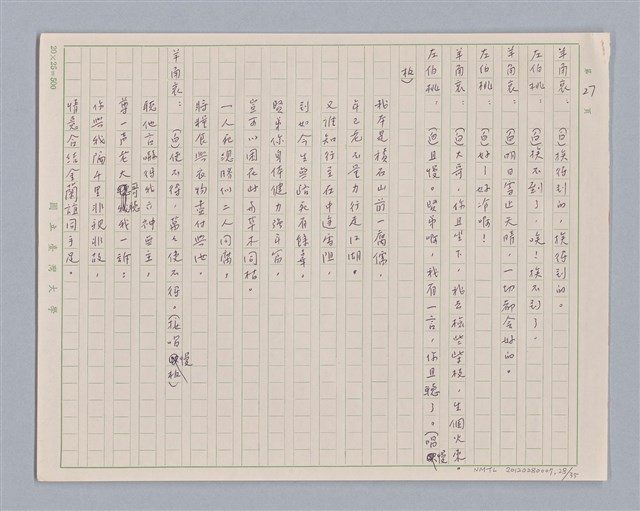 第 27 頁
羊角哀：(白)挨得到的，挨得到的。
左伯桃：(白)挨不到了，唉！挨不到了。
羊角哀：(白)明日雪止天晴，一切都会好的。
左伯桃：(白)好！好冷啊！
羊角哀：(白)大哥，你且坐下，我去檢些柴枝，生個火來。
左伯桃：(白)且慢。賢弟啊，我有一言，你且聽了。(唱慢
板)
我本是積石山前一腐儒，
年已老不量力行走江湖。
又誰知行至在中途雪阻，
到如今生無路死有餘辜。
賢弟你身体健力強可當，
豈可以困在此与草木同枯。
一人死總勝似二人同腐，
將糧食与衣物盡付与汝。
羊角哀：(白)使不得，萬々使不得。(接唱慢板)
聽他言嚇得我六神無主，
尊一声老大哥聽我一訴：
你与我隔千里非親非故，
情意合結金蘭誼同手足。
20×25=500
國立臺灣大學
NMTL 20120280009, 28/35